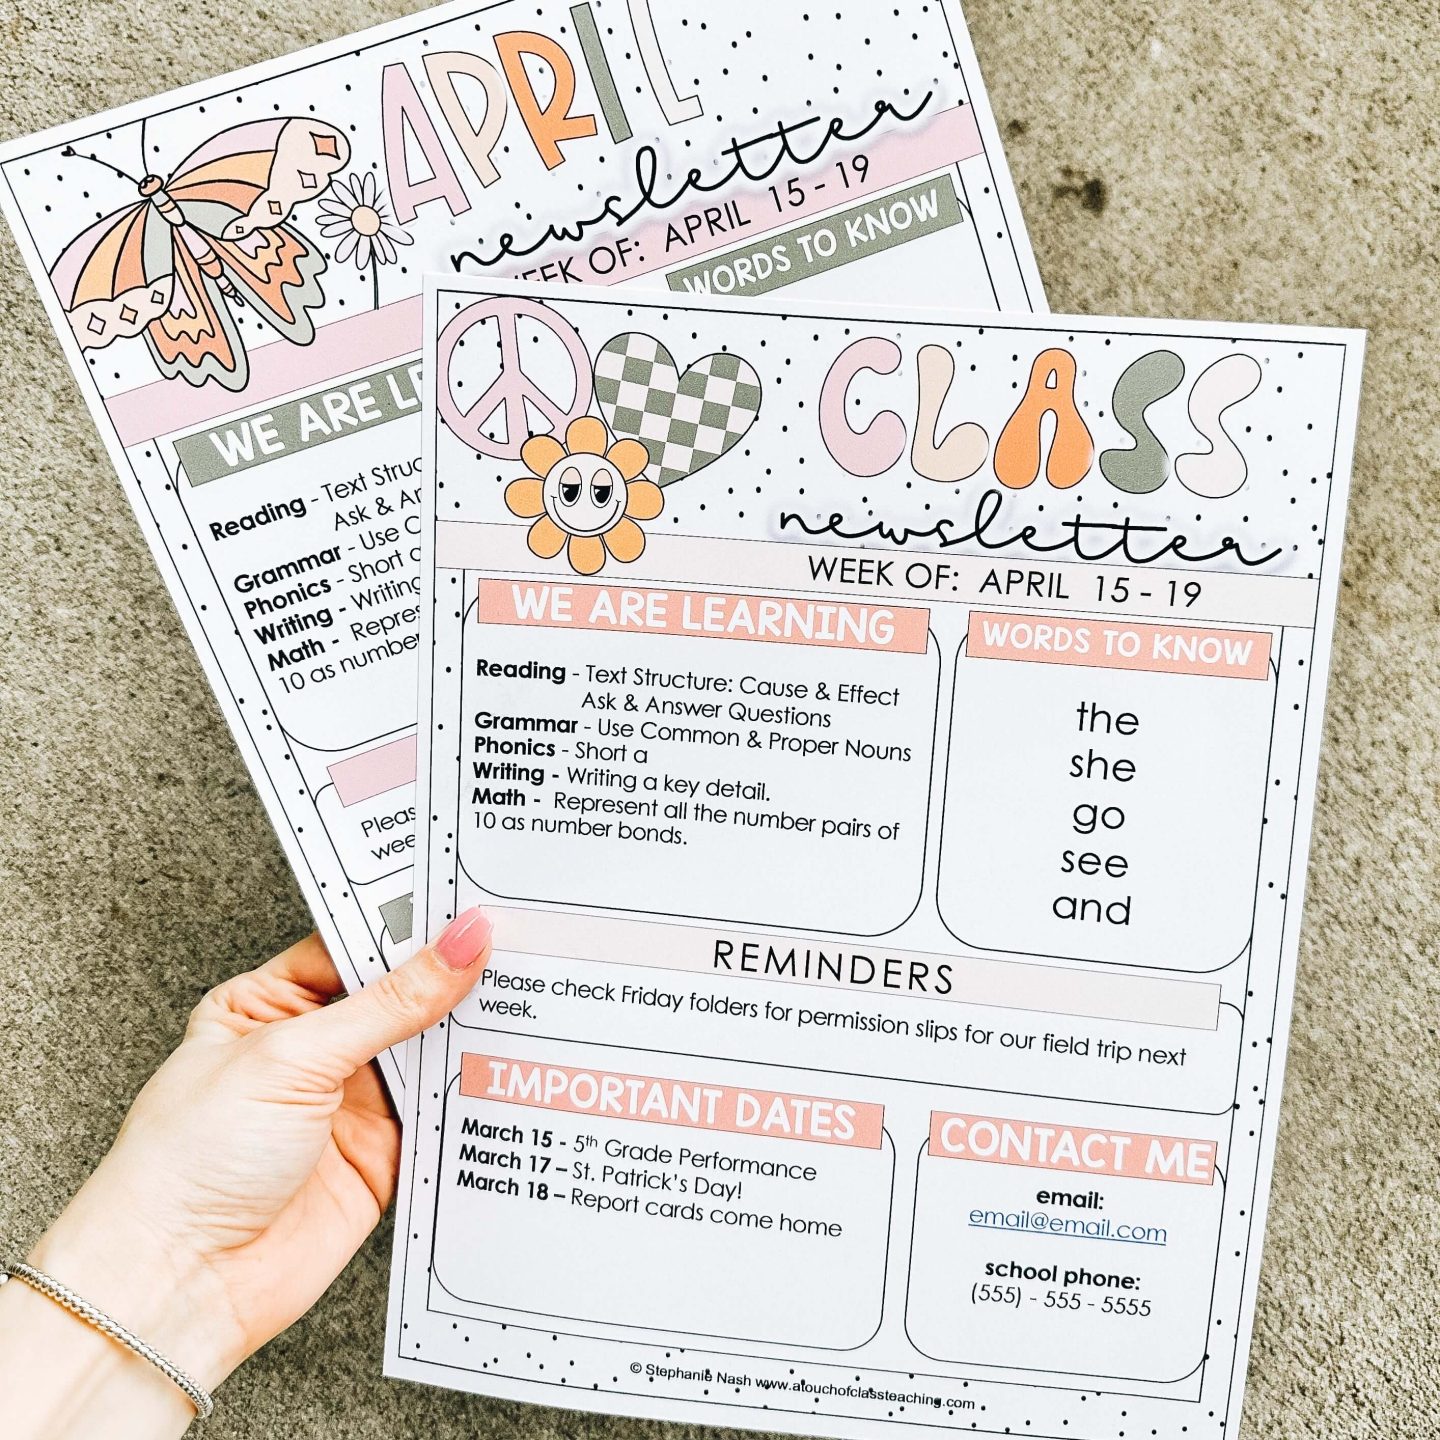 APRIL
newsletter
WEEK OF: APRIL 15 - 19
WORDS TO KNOW
WE ARE
Reading - Text
Ask &
Grammar - Use
Phonics - Short
Writing - Writing
Math -
10 as
CLASS
newsletter
WEEK OF: APRIL 15 - 19
WE ARE LEARNING
Reading - Text Structure: Cause & Effect
Ask & Answer Questions
Grammar - Use Common & Proper Nouns
Phonics - Short a
Writing - Writing a key detail.
Math - Represent all the number pairs of
10 as number bonds.
WORDS TO KNOW
the
she
go
see
and
REMINDERS
Please check Friday folders for permission slips for our field trip next
week.
IMPORTANT DATES
March 15 - 5th Grade Performance
March 17 – St. Patrick's Day!
March 18 – Report cards come home
CONTACT ME
email:
email@email.com
school phone:
(555) - 555 - 5555
© Stephanie Nash www.atouchofclassteaching.com